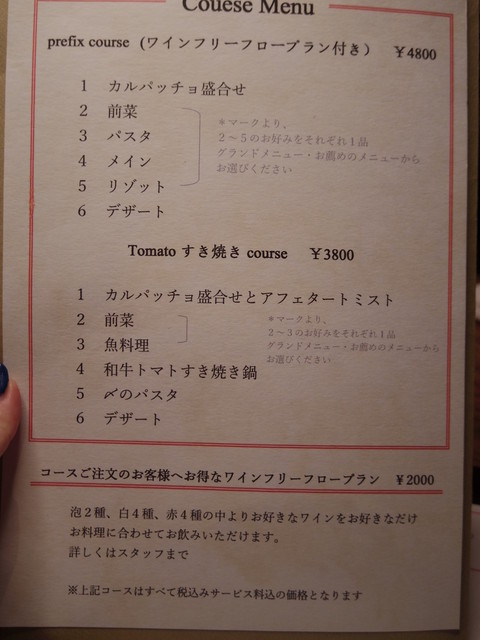 Couese Menu
prefix course (ワインフリーフロープラン付き) ¥4800
1 カルパッチョ盛合せ
2 前菜
3 パスタ
4 メイン
5 リゾット
6 デザート
＊マークより、
２～５のお好みをそれぞれ１品
グランドメニュー・お薦めのメニューから
お選びください
Tomato すき焼き course ¥3800
1 カルパッチョ盛合せとアフェタートミスト
2 前菜
3 魚料理
4 和牛トマトすき焼き鍋
5 〆のパスタ
6 デザート
＊マークより、
２～３のお好みをそれぞれ１品
グランドメニュー・お薦めのメニューから
お選びください
コースご注文のお客様へお得なワインフリーフロープラン ¥2000
泡２種、白４種、赤４種の中よりお好きなワインをお好きなだけ
お料理に合わせてお飲みいただけます。
詳しくはスタッフまで
※上記コースはすべて税込みサービス料込の価格となります